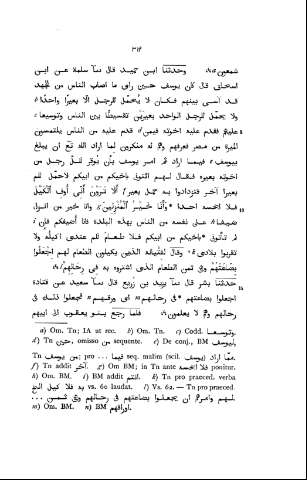 ٣٩٤
شمعون وحدثنا ابن حميد قال سآ سلمة عن ابن
اسحاق قال كان يوسف حين رأى ما اصاب الناس من الجهد
قد آسى بينهم فكان لا يُحمّل للرجل الّا بعيرًا واحدًا
ولا يحمّل الرجل الواحد بعيرَيْن تقسيطًا بين الناس وتوسيعا
عليهم فقدم عليه اخوته فيمن قدم عليه من الناس يلتمسون
الميرة من مصر فعرفهم وهم له منكرون لما اراد الله تع ان يبلغ
بيوسف فيما اراد ثم امر يوسف بأن يُوقر لكلّ رجل من
اخوته بعيره فقال لهم ائتونى باخيكم من ابيكم لاحمل لكم
بعيرًا آخر فتزدادوا به حمل بعير أَلَا تَرَوْنَ أَنِّى أُوفِى ٱلْكَيْلَ
فلا ابخسه احدا وَأَنَا خَيْرُ ٱلْمُنْزِلِينَ وانا خير من انزل
ضيفا على نفسه من الناس بهذه البلدة فانا أُضيفكم فإن
لم تأتونى باخيكم من ابيكم فلا طعام لكم عندى اكيله ولا
تقربوا بلادى وقال لفتيانه الذين يكيلون الطعام لهم اجعلوا
بضاعتهم وهى ثمن الطعام الذى اشتروه به فى رحالهم
حدثنا بشر قال سآ يزيد بن زريع قال سآ سعيد عن قتادة
اجعلوا بضاعتهم فى رحالهم اى ورقهم فجعلوا ذلك فى
رحالهم وهم لا يعلمون فلما رجع بنو يعقوب الى ابيهم
a) Om. Tn; IA ut rec. b) Om. Tn. c) Codd. وتوسعا.
d) Tn حين, omisso من sequente. e) De conj., BM ليوسف,
Tn من يوسف; pro فيما ... seq. malim (scil. يوسف) ممّا اراد.
f) Tn addit آخر. g) Om BM; in Tn ante فلا ابخسه ponitur.
h) Om. BM. i) BM addit انتم. k) Tn pro praeced. verba
vs. 60 laudat. l) Vs. 62. — Tn pro praeced. به فلا كيل الخ
لهم وامرهم ان يجعلوا بضاعتهم فى رحالهم وهى ثمن ...
m) Om. BM. n) BM اوراقهم.